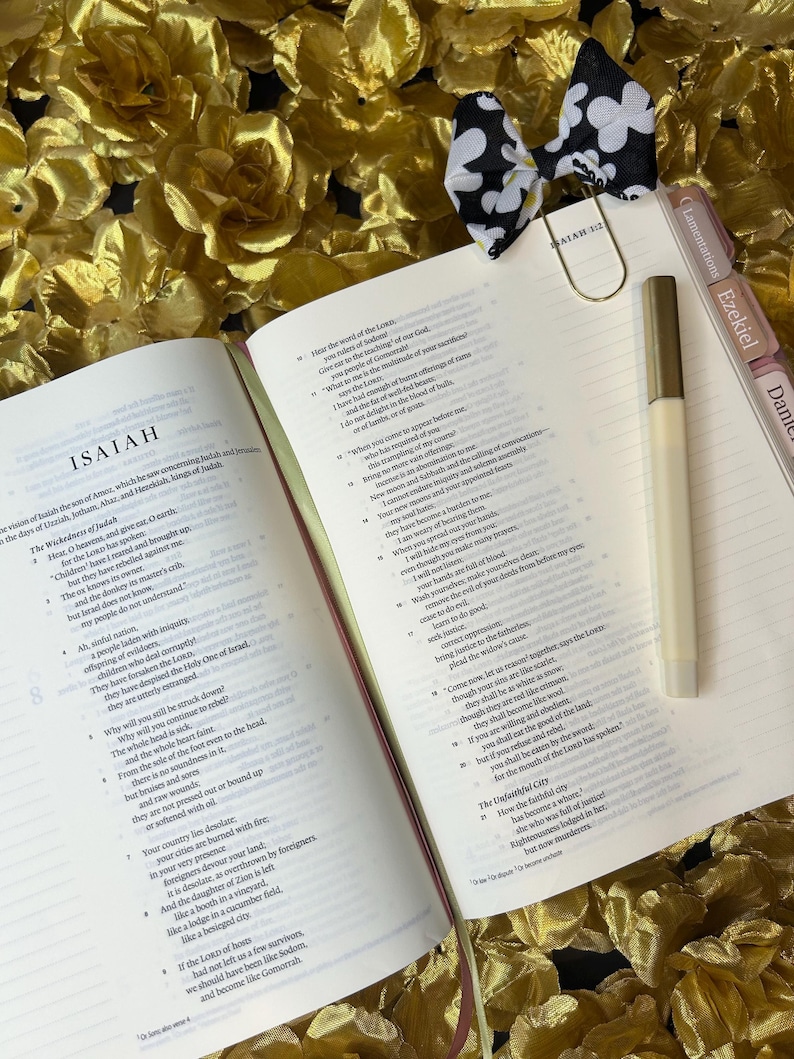 ISAIAH
he vision of Isaiah the son of Amoz, which he saw concerning Judah and Jerusalem
n the days of Uzziah, Jotham, Ahaz, and Hezekiah, kings of Judah.
The Wickedness of Judah
2 Hear, O heavens, and give ear, O earth;
for the LORD has spoken:
“Children¹ have I reared and brought up,
but they have rebelled against me.
3 The ox knows its owner,
and the donkey its master’s crib,
but Israel does not know,
my people do not understand.”
4 Ah, sinful nation,
a people laden with iniquity,
offspring of evildoers,
children who deal corruptly!
They have forsaken the LORD,
they have despised the Holy One of Israel,
they are utterly estranged.
5 Why will you still be struck down?
Why will you continue to rebel?
The whole head is sick,
and the whole heart faint.
6 From the sole of the foot even to the head,
there is no soundness in it,
but bruises and sores
and raw wounds;
they are not pressed out or bound up
or softened with oil.
7 Your country lies desolate;
your cities are burned with fire;
in your very presence
foreigners devour your land;
it is desolate, as overthrown by foreigners.
8 And the daughter of Zion is left
like a booth in a vineyard,
like a lodge in a cucumber field,
like a besieged city.
9 If the LORD of hosts
had not left us a few survivors,
we should have been like Sodom,
and become like Gomorrah.
¹ Or Sons; also verse 4
ISAIAH 1:2
10 Hear the word of the LORD,
you rulers of Sodom!
Give ear to the teaching¹ of our God,
you people of Gomorrah!
11 “What to me is the multitude of your sacrifices?
says the LORD;
I have had enough of burnt offerings of rams
and the fat of well-fed beasts;
I do not delight in the blood of bulls,
or of lambs, or of goats.
12 “When you come to appear before me,
who has required of you
this trampling of my courts?
13 Bring no more vain offerings;
incense is an abomination to me.
New moon and Sabbath and the calling of convocations—
I cannot endure iniquity and solemn assembly.
14 Your new moons and your appointed feasts
my soul hates;
they have become a burden to me;
I am weary of bearing them.
15 When you spread out your hands,
I will hide my eyes from you;
even though you make many prayers,
I will not listen;
your hands are full of blood.
16 Wash yourselves; make yourselves clean;
remove the evil of your deeds from before my eyes;
cease to do evil,
17 learn to do good;
seek justice,
correct oppression;
bring justice to the fatherless,
plead the widow’s cause.
18 “Come now, let us reason² together, says the LORD:
though your sins are like scarlet,
they shall be as white as snow;
though they are red like crimson,
they shall become like wool.
19 If you are willing and obedient,
you shall eat the good of the land;
20 but if you refuse and rebel,
you shall be eaten by the sword;
for the mouth of the LORD has spoken.”
The Unfaithful City
21 How the faithful city
has become a whore,³
she who was full of justice!
Righteousness lodged in her,
but now murderers.
¹ Or law ² Or dispute ³ Or become unchaste
Lamentations
Ezekiel
Daniel